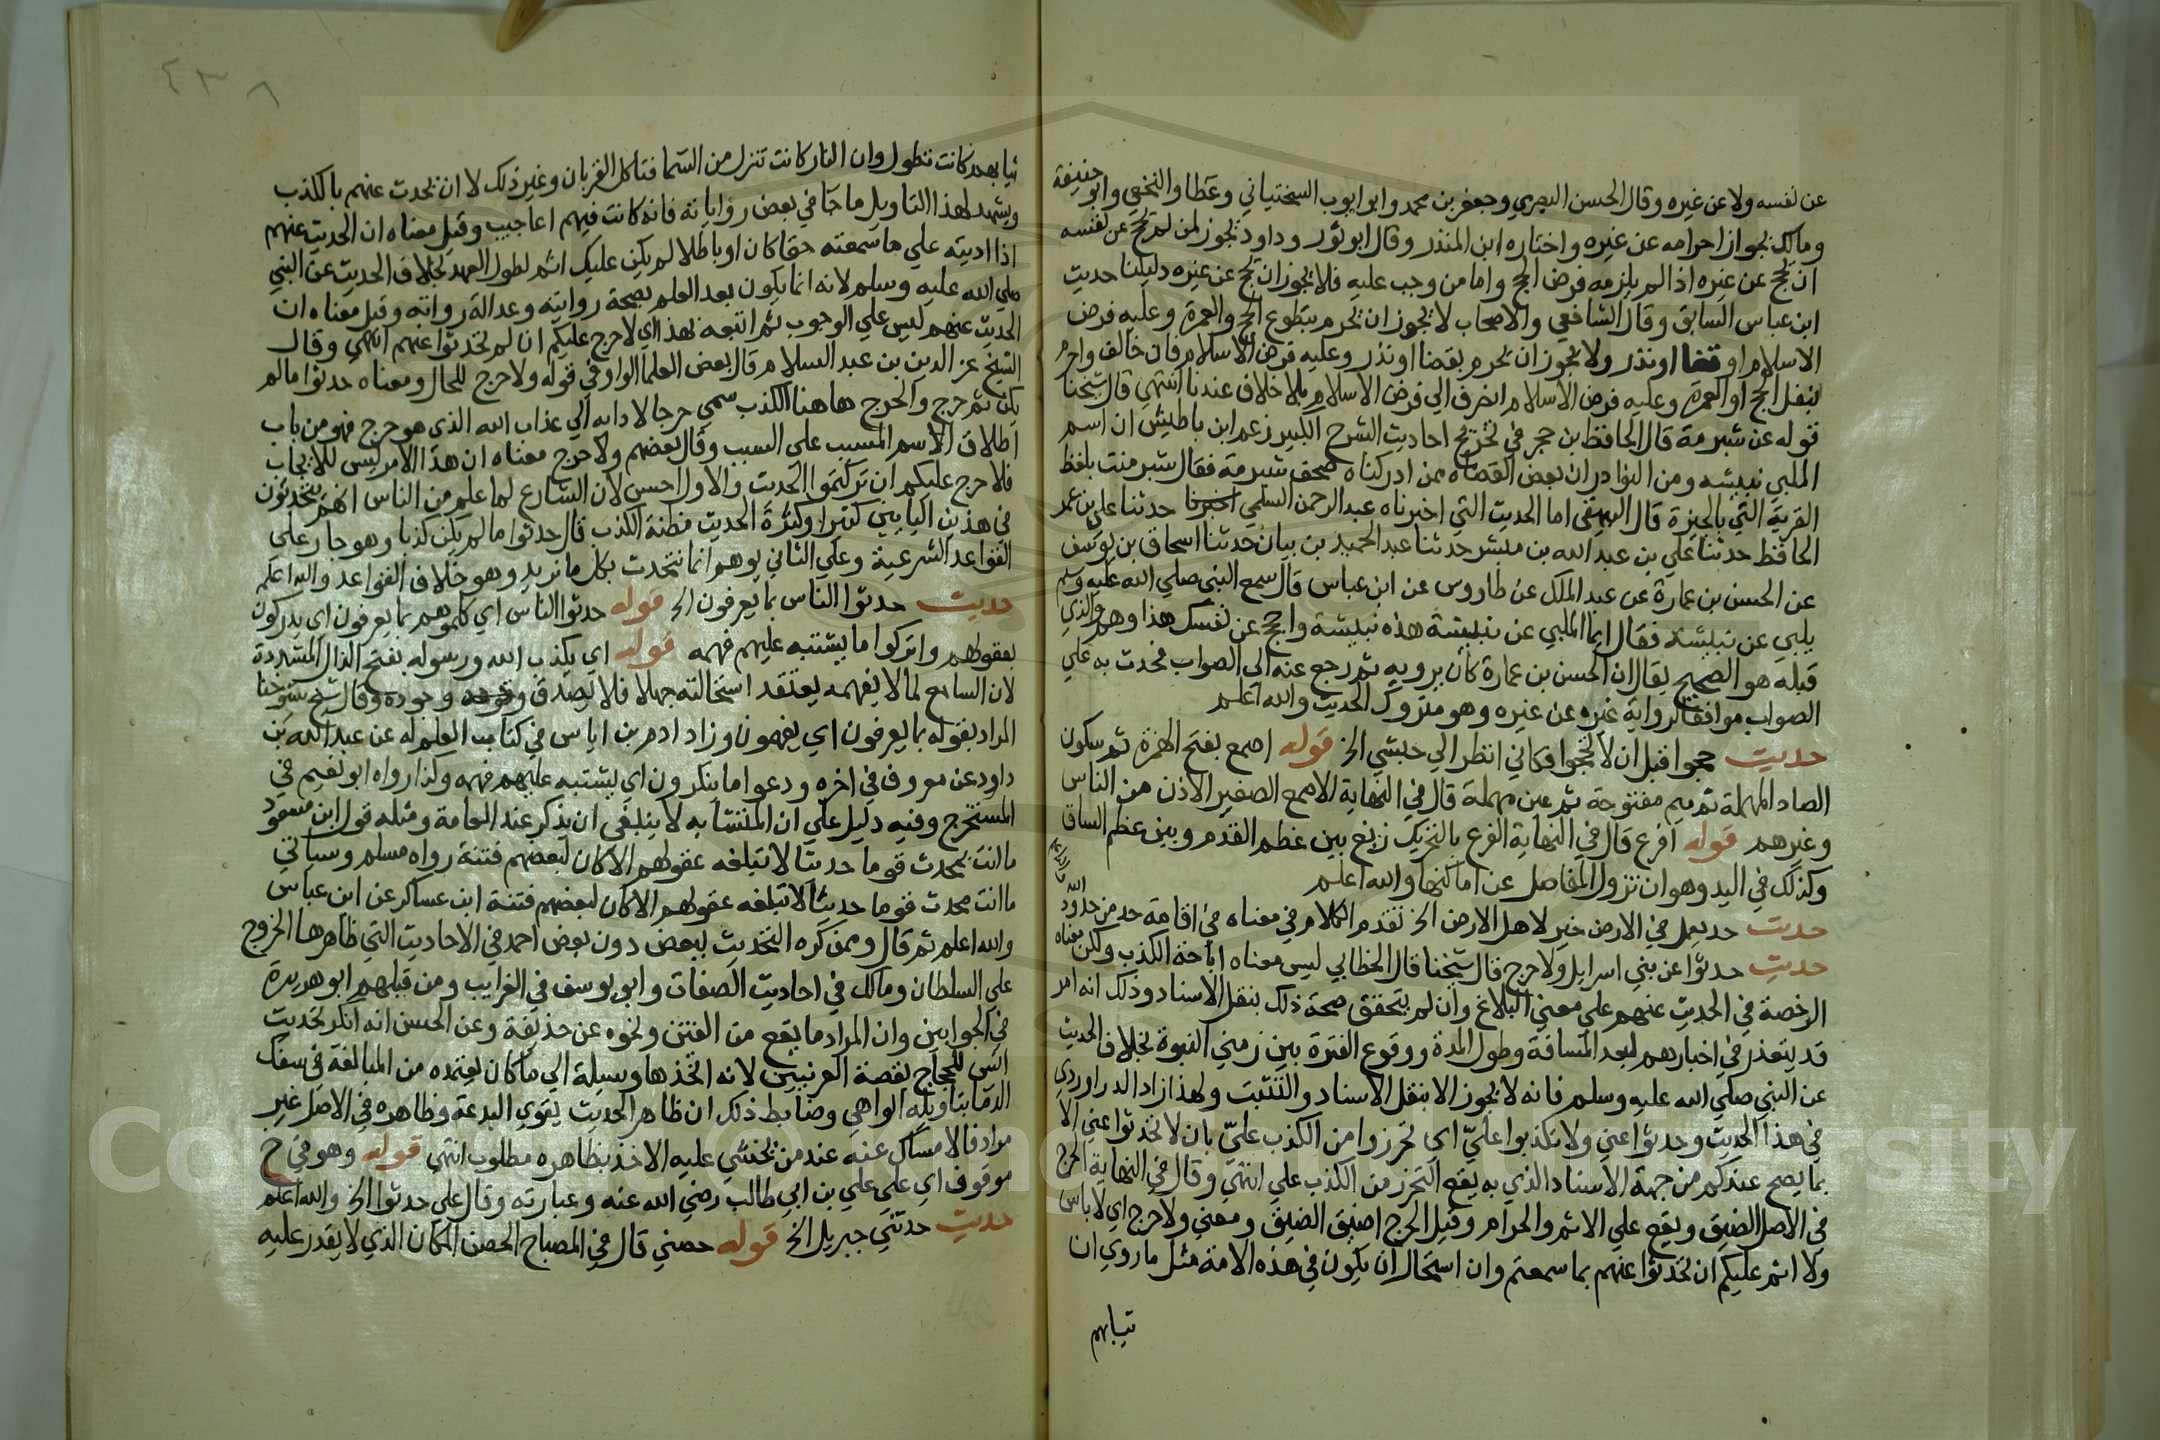 عن نفسه ولا عن غيره وقال الحسن البصري وجعفر بن محمد وابو ايوب السختياني وعطا والنخعي وابو حنيفة
ومالك يجواز احرامه عن غيره واختاره ابن المنذر وقال ابو ثور وداود يجوز لمن لم يحج عن نفسه
ان يحج عن غيره اذا لم يلزمه فرض الحج واما من وجب عليه فلا يجوز ان يحج عن غيره دليلنا حديث
ابن عباس السابق وقال الشافعي والاصحاب لا يجوز ان يحرم بتطوع الحج والعمرة وعليه فرض
الاسلام او قضا او نذر ولا يجوز ان يحرم بقضا او نذر وعليه فرض الاسلام فان خالف واحرم
بنفل الحج او العمرة وعليه فرض الاسلام انصرف الي فرض الاسلام بلا خلاف عندنا انتهي قال شيخنا
قوله عن شبرمة قال الحافظ بن حجر في تخريج احاديث الشرح الكبير زعم ابن باطيش ان اسم
الملبي نبيشه ومن النوادر ان بعض القضاه ممن ادركناه صحف شبرمة فقال شبرمنت بلفظ
القرية التي بالجيزة قال البيهقي اما الحديث التي اخبرناه عبد الرحمن السلمي اخبرنا حدثنا علي بن عمر
الحافظ حدثنا علي بن عبد الله بن مبشر حدثنا عبد الحميد بن بيان حدثنا اسحاق بن يوسف
عن الحسن بن عمارة عن عبد الملك عن طاووس عن ابن عباس قال سمع النبي صلي الله عليه وسلم
يلبي عن نبيشة فقال ايها الملبي عن نبيشة هذه نبيشة واحجج عن نفسك هذا وهم والذي
قبله هو الصحيح يقال ان الحسن بن عمارة كان يرويه ثم رجع عنه الي الصواب فحدث به علي
الصواب موافقا لرواية غيره عن غيره وهو متروك الحديث والله اعلم
حديث حجوا قبل ان لا تحجوا فكاني انظر الي حبشي الخ قوله اصمع بفتح الهمزة ثم سكون
الصاد المهملة ثم ميم مفتوحة ثم عين مهملة قال في النهاية الاصمع الصغير الاذن من الناس
وغيرهم قوله افرع قال في النهاية الفرع بالتحريك زيغ بين عظم القدم وبين عظم الساق
وكذلك في اليد وهو ان تزول المفاصل عن اماكنها والله اعلم
حديث حد يعمل في الارض خير لاهل الارض الخ تقدم الكلام في معناه في اقامة حد من حدود الله
حديث حدثوا عن بني اسرايل ولا حرج قال شيخنا قال الخطابي ليس معناه اباحة الكذب ولكن معناه
الرخصة في الحديث عنهم علي معني البلاغ وان لم يتحقق صحة ذلك بنقل الاسناد وذلك انه امر
قد يتعذر في اخبارهم لبعد المسافة وطول المدة ووقوع الفترة بين زمني النبوة بخلاف الحديث
عن النبي صلي الله عليه وسلم فانه لا يجوز الا بنقل الاسناد والتثبت ولهذا زاد الدراوردي
في هذا الحديث وحدثوا عني ولا تكذبوا عليّ اي تحرزوا من الكذب عليّ بان لا تحدثوا عني الا
بما يصح عندكم من جهة الاسناد الذي به يقع التحرز من الكذب علي انتهي وقال في النهاية الحرج
في الاصل الضيق ويقع علي الاثم والحرام وقيل الحرج اضيق الضيق ومعني ولا حرج اي لا باس
ولا اثم عليكم ان تحدثوا عنهم بما سمعتم وان استحال ان يكون في هذه الامة مثل ما روي ان
ثيابهم
٤٣٨
ثيابهم كانت تطول وان النار كانت تنزل من السما فتاكل القربان وغير ذلك لا ان يحدث عنهم بالكذب
ويشهد لهذا التاويل ما جا في بعض رواياته فانه كانت فيهم اعاجيب وقيل معناه ان الحديث عنهم
اذا اديته علي ما سمعته حقا كان او باطلا لم يكن عليك اثم لطول العهد بخلاف الحديث عن النبي
صلي الله عليه وسلم لانه انما يكون بعد العلم بصحة روايته وعدالة رواته وقيل معناه ان
الحديث عنهم ليس علي الوجوب ثم اتبعه لهذا اي لا حرج عليكم ان لم تحدثوا عنهم انتهي وقال
الشيخ عز الدين بن عبد السلام قال بعض العلما الواو في قوله ولا حرج للحال ومعناه حدثوا ما لم
يكن ثم حرج والحرج هاهنا الكذب سمي حرجا لادايه الي عذاب الله الذي هو حرج فهو من باب
اطلاق الاسم المسبب علي السبب وقال بعضهم ولا حرج معناه ان هذا الامر ليس للايجاب
فلا حرج عليكم ان تركتموا الحديث والاول احسن لان الشارع لما علم من الناس انهم يتحدثون
في هذين البابين كثيرا وكثرة الحديث مظنة الكذب قال حدثوا ما لم يكن كذبا وهو جار علي
القواعد الشرعية وعلي الثاني يوهم انما نتحدث بكل ما نريد وهو خلاف القواعد والله اعلم
حديث حدثوا الناس بما يعرفون الخ قوله حدثوا الناس اي كلموهم بما يعرفون اي يدركون
بعقولهم واتركوا ما يشتبه عليهم فهمه قوله اي يكذب الله ورسوله بفتح الذال المشددة
لان السامع لما لا يفهمه يعتقد استحالته جهلا فلا يصدق وجوده وقال شيخ شيوخنا
المراد بقوله بما يعرفون اي يفهمون وزاد ادم بن اياس في كتاب العلم له عن عبد الله بن
داود عن معروف في اخره ودعوا ما ينكرون اي يشتبه عليهم فهمه وكذا رواه ابو نعيم في
المستخرج وفيه دليل علي ان المتشابه لا ينبغي ان يذكر عند العامة ومثله قول ابن مسعود
ما انت بمحدث قوما حديثا لا تبلغه عقولهم الا كان لبعضهم فتنة رواه مسلم وسياتي
ما انت محدث قوما حديثا لا تبلغه عقولهم الا كان لبعضهم فتنة ابن عساكر عن ابن عباس
والله اعلم ثم قال وممن كره التحديث ببعض دون بعض احمد في الاحاديث التي ظاهرها الخروج
علي السلطان ومالك في احاديث الصفات وابو يوسف في الغرايب ومن قبلهم ابو هريرة
في الجوابين وان المراد ما يقع من الفتن ونحوه عن حذيفة وعن الحسن انه انكر تحديث
انس للحجاج بقصة العرنيين لانه اتخذها وسيلة الي ما كان يعتمده من المبالغة في سفك
الدما بتاويله الواهي وضابط ذلك ان ظاهر الحديث يقوي البدعة وظاهره في الاصل غير
مراد فالامساك عنه عند من يخشي عليه الاخذ بظاهره مطلوب انتهي قوله وهو في خ
موقوف اي علي علي بن ابي طالب رضي الله عنه وعبارته وقال علي حدثوا الخ والله اعلم
حديث حدثني جبريل الخ قوله حصني قال في المصباح الحصن المكان الذي لا يقدر عليه